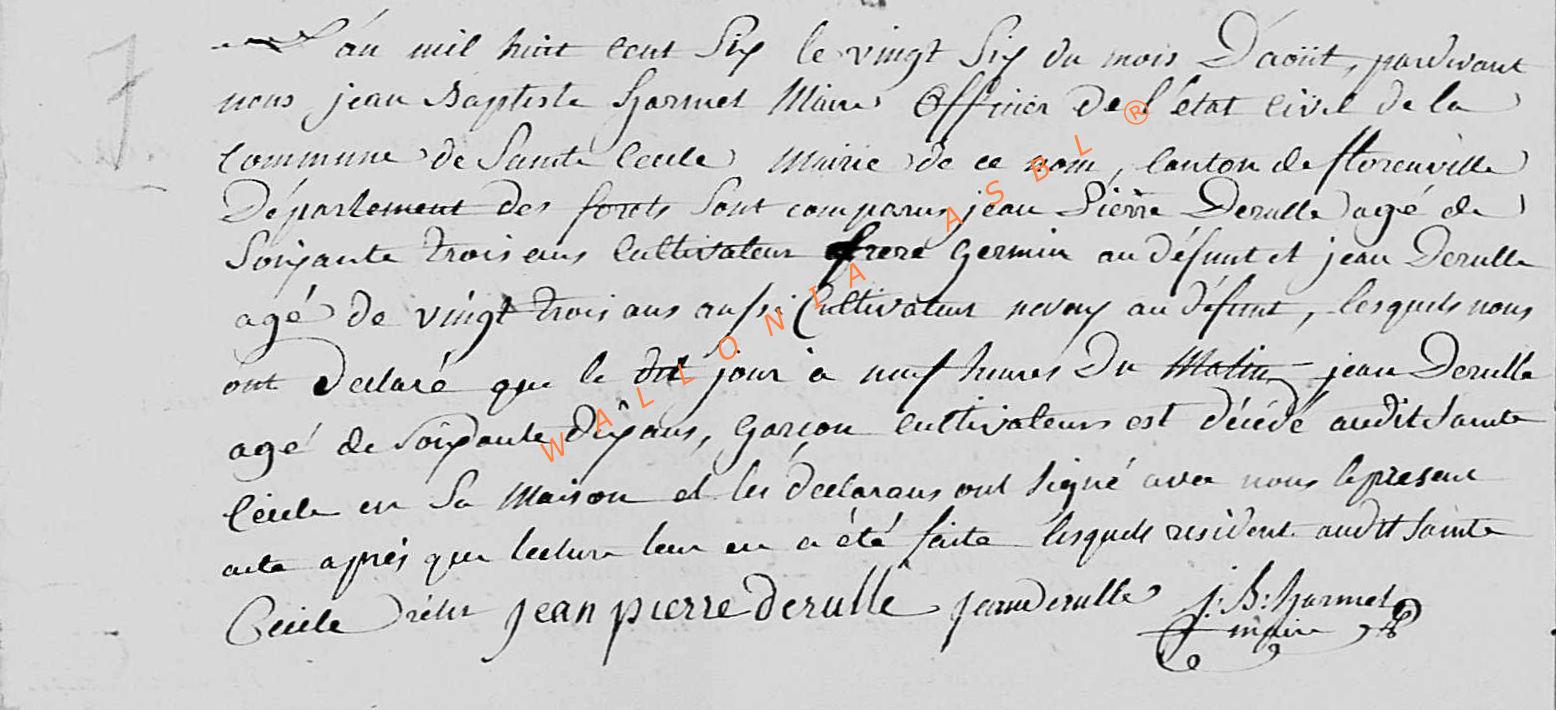 L'an mil huit cent Six le vingt Six du mois D'aoüt, pardevant
nous jean Baptiste Harmel Maire Officier de l'état civil de la
Commune de Sainte Cecile Mairie de ce nom, Canton de florenville
Département des forets Sont comparus jean Pierre Derulle agé de
Soixante trois ans Cultivateur frere germin au défunt et jean Derulle
agé de vingt trois ans aussi Cultivateur nevoux au défunt, lesquels nous
ont Declaré que le dit jour à neuf heures Du Matin jean Derulle
agé de Soixante Dix ans, Garçon Cultivateur est décédé audit Sainte
Cécile en Sa Maison et les déclarans ont Signé avec nous le présent
acte après que lecture leur en a été faite lesquels resident audit Sainte
Cecile jean pierre Derulle jean Derulle j: B: Harmel
maire
WALLONIA ASBL ®
7